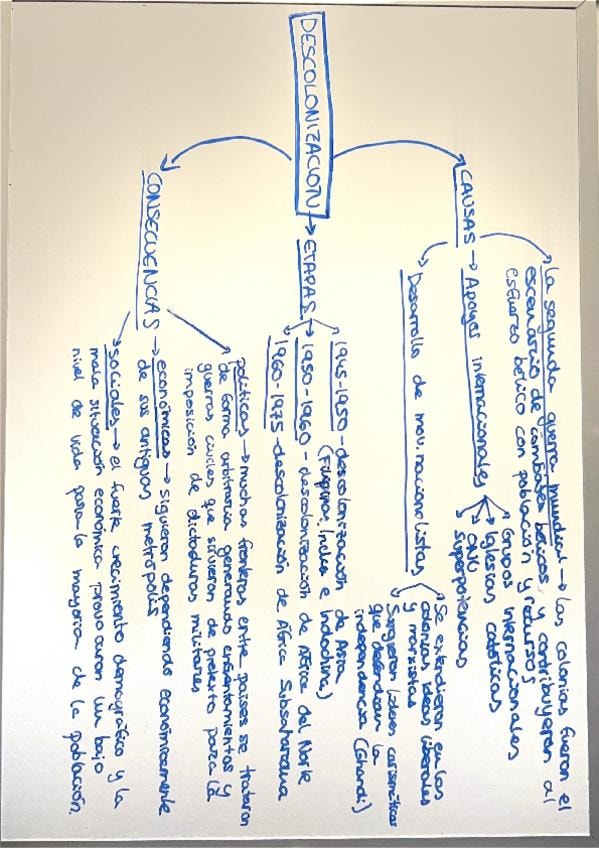 DESCOLONIZACIÓN
CAUSAS
La segunda guerra mundial → Las colonias fueron el
escenario de combates bélicos y contribuyeron al
esfuerzo bélico con población y recursos
→ Apoyos internacionales
Grupos internacionales
Iglesias católicas
ONU
Superpotencias
Desarrollo de mov. nacionalistas
Se extendieron en las
colonias ideas liberales
y marxistas
Surgieron líderes carismáticos
que defendían la
independencia (Ghandi)
→ ETAPAS
1945-1950 - descolonización de Asia
(Filipinas, India e Indochina)
1950-1960 - descolonización de África del Norte
1960-1975 - descolonización de África Subsahariana
CONSECUENCIAS
políticas → muchas fronteras entre países se trataron
de forma arbitraria generando enfrentamientos y
guerras civiles que sirvieron de pretexto para la
imposición de dictaduras militares
→ económicas → siguieron dependiendo económicamente
de sus antiguas metrópolis
sociales → el fuerte crecimiento demográfico y la
mala situación económica provocaron un bajo
nivel de vida para la mayoría de la población.